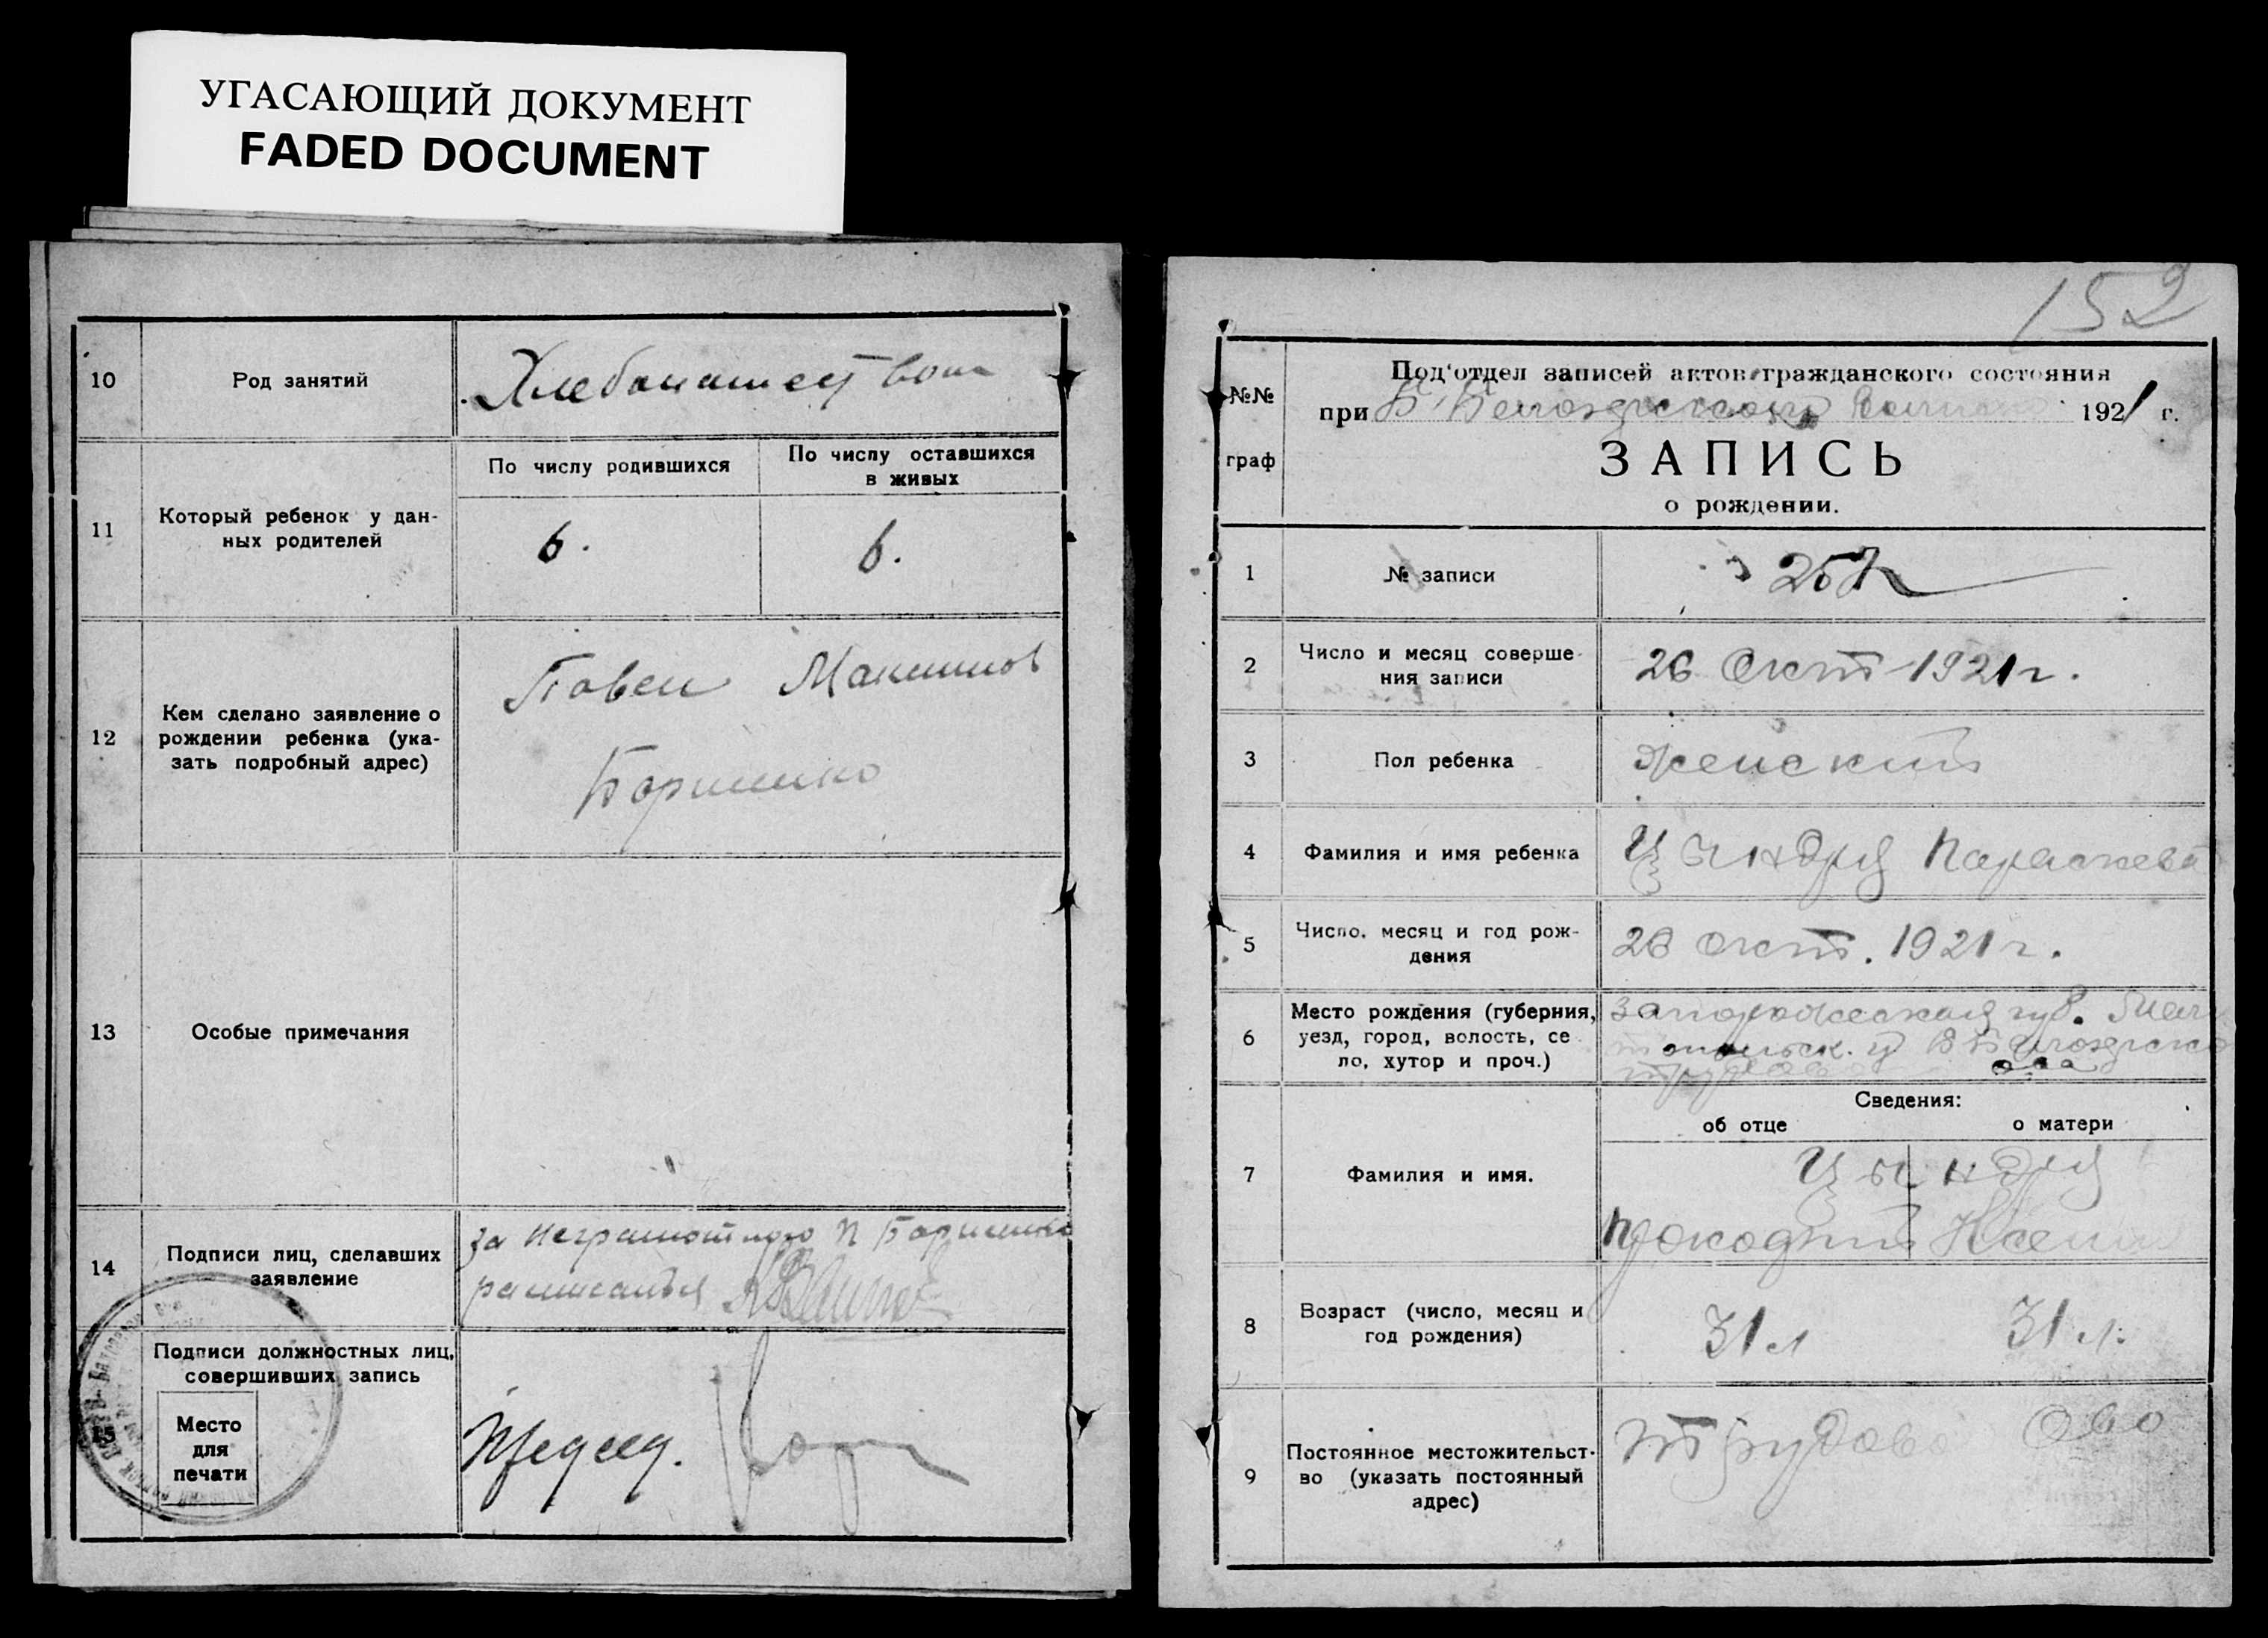 УГАСАЮЩИЙ ДОКУМЕНТ
FADED DOCUMENT
10 Род занятий Хлебопашеством
11 Который ребенок у дан-
ных родителей
По числу родившихся
По числу оставшихся
в живых
6. 6.
12 Кем сделано заявление о
рождении ребенка (ука-
зать подробный адрес)
Павел Максимов
Борименко
13 Особые примечания
14 Подписи лиц, сделавших
заявление
за неграмотного П Борименко
расписался
15 Подписи должностных лиц,
совершивших запись
Место
для
печати
Председ.
152
№№
граф
Под'отдел записей актов гражданского состояния
при 1921 г.
ЗАПИСЬ
о рождении.
1 № записи 257
2 Число и месяц соверше-
ния записи
26 Окт 1921 г.
3 Пол ребенка женский
4 Фамилия и имя ребенка Цындря Параскева
5 Число, месяц и год рож-
дения
26 окт. 1921 г.
6 Место рождения (губерния,
уезд, город, волость, се
ло, хутор и проч.)
Запорожеская губ. Мели
топольск. у
7 Фамилия и имя.
Сведения:
об отце о матери
Цындря
Прокофий Ксения
8 Возраст (число, месяц и
год рождения)
31 л 31 л.
9 Постоянное местожительст-
во (указать постоянный
адрес)